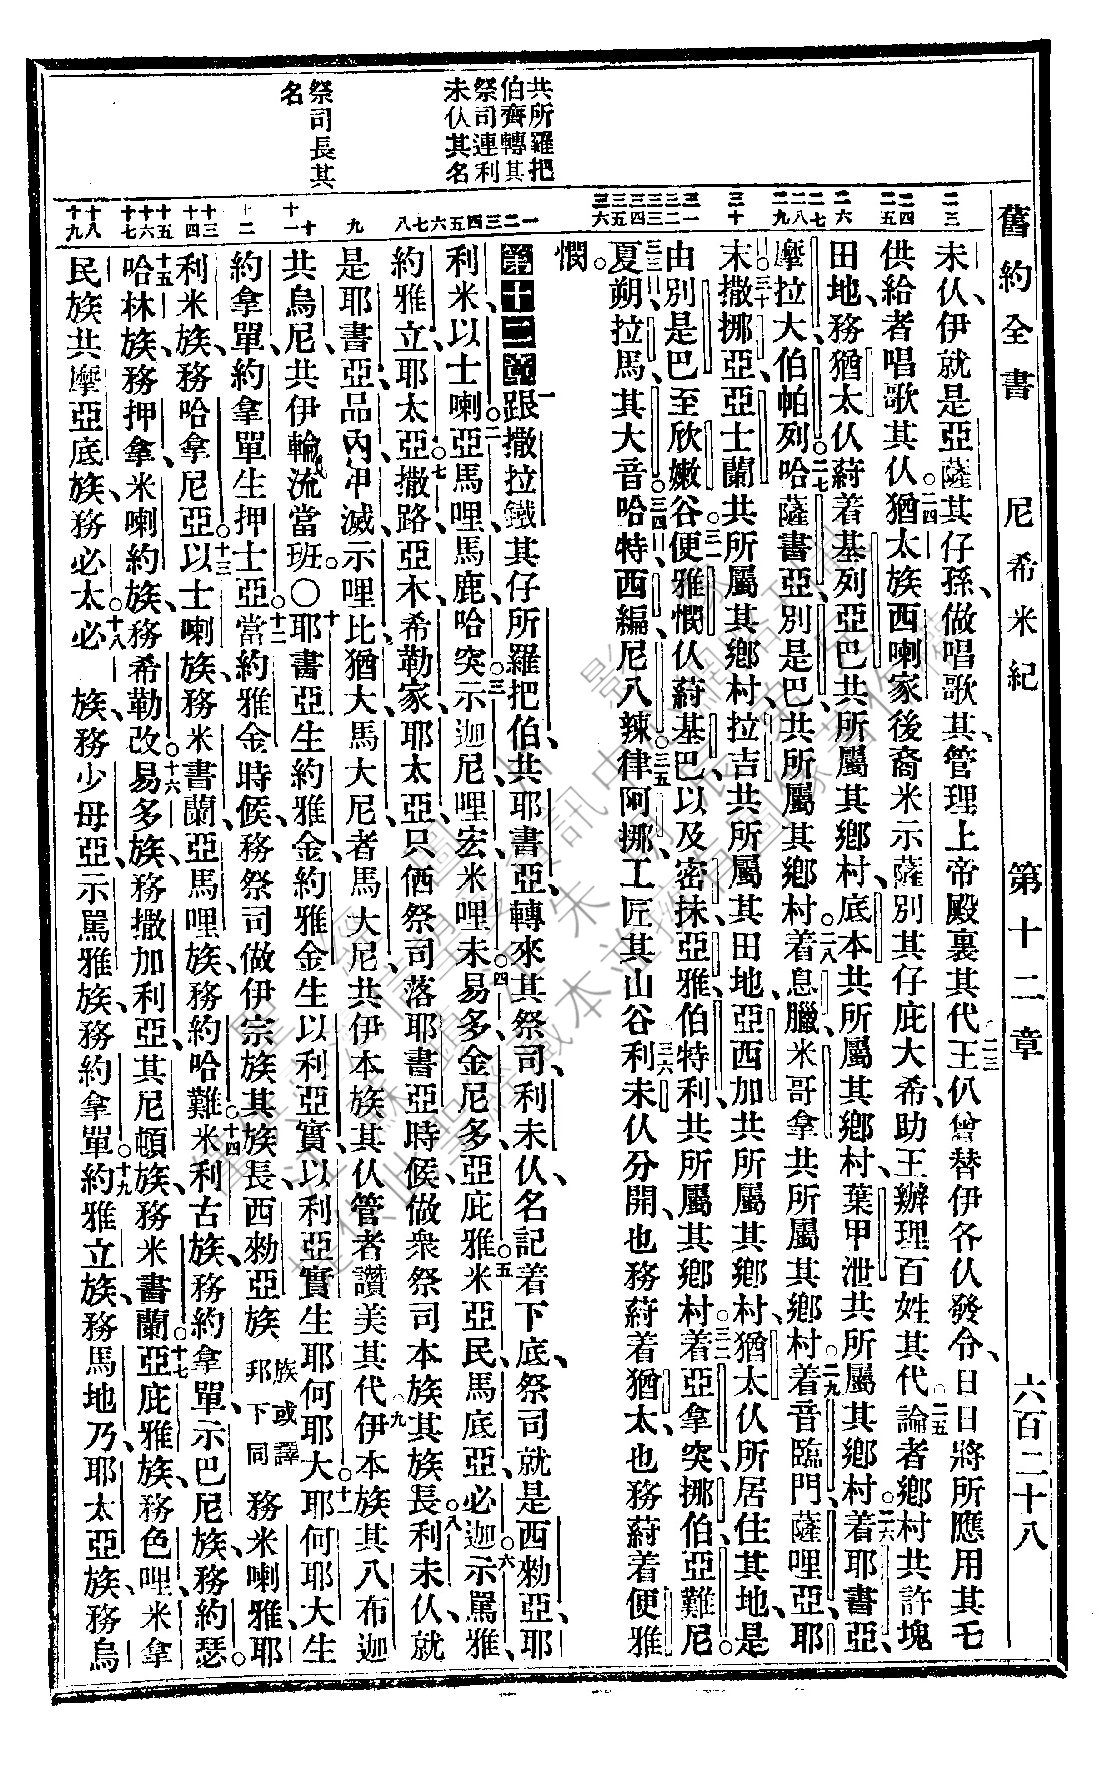 舊約全書 尼希米紀 第十二章 六百二十八
共所羅把
伯齊轉其
祭司連利
未仈其名
祭司長其
名
未仈、伊就是亞薩其仔孫、做唱歌其、管理上帝殿裏其代王仈曾替伊各仈發令、日日將所應用其乇
供給者唱歌其仈。猶太族西喇家後裔米示薩別其仔庇大希助王辦理百姓其代。論者鄉村共許塊
田地、務猶太仈蒔着基列亞巴共所屬其鄉村、底本共所屬其鄉村、葉甲泄共所屬其鄉村、着耶書亞、
摩拉大、伯帕列、哈薩書亞、別是巴、共所屬其鄉村。着息臘、米哥拿共所屬其鄉村、着音臨門、薩哩亞、耶
末、撒挪亞、亞士蘭、共所屬其鄉村、拉吉共所屬其田地、亞西加共所屬其鄉村、猶太仈所居住其地、是
由別是巴至欣嫩谷。便雅憫仈蒔基巴、以及密抹、亞雅、伯特利、共所屬其鄉村、着亞拿突、挪伯、亞難尼
夏朔、拉馬、其大音、哈特、西編、尼八辣、律、阿挪、工匠其山谷。利未仈分開、也務蒔着猶太、也務蒔着便雅
憫。
第十二章 一跟撒拉鐵其仔所羅把伯共耶書亞轉來其祭司利未仈、名記着下底、祭司就是西勑亞、耶
利米、以士喇、亞馬哩、馬鹿、哈突、示迦尼、哩宏、米哩末、易多、金尼多、亞庇雅、米亞民、馬底亞、必迦、示罵雅、
約雅立、耶太亞、撒路、亞木、希勒家、耶太亞、只價祭司落耶書亞時候、做衆祭司本族其族長。利未仈、就
是耶書亞、品內、甲滅、示哩比、猶大、馬大尼、者馬大尼共伊本族其仈管者讚美其代。伊本族其八布迦
共烏尼、共伊輪流當班。〇耶書亞生約雅金、約雅金生以利亞實、以利亞實生耶何耶大、耶何耶大生
約拿單、約拿單生押士亞。當約雅金時候、務祭司做伊宗族其族長、西勑亞族族或譯邦下同務米喇雅、耶
利米族、務哈拿尼亞。以士喇族、務米書蘭、亞馬哩族、務約哈難。米利古族、務約拿單、示巴尼族、務約瑟。
哈林族、務押拿、米喇約族、務希勒改。易多族、務撒加利亞、其尼頓族、務米書蘭。亞庇雅族、務色哩、米拿
民族共摩亞底族、務必太。必 族務少母亞、示罵雅族、務約拿單。約雅立族、務馬地乃、耶太亞族、務烏